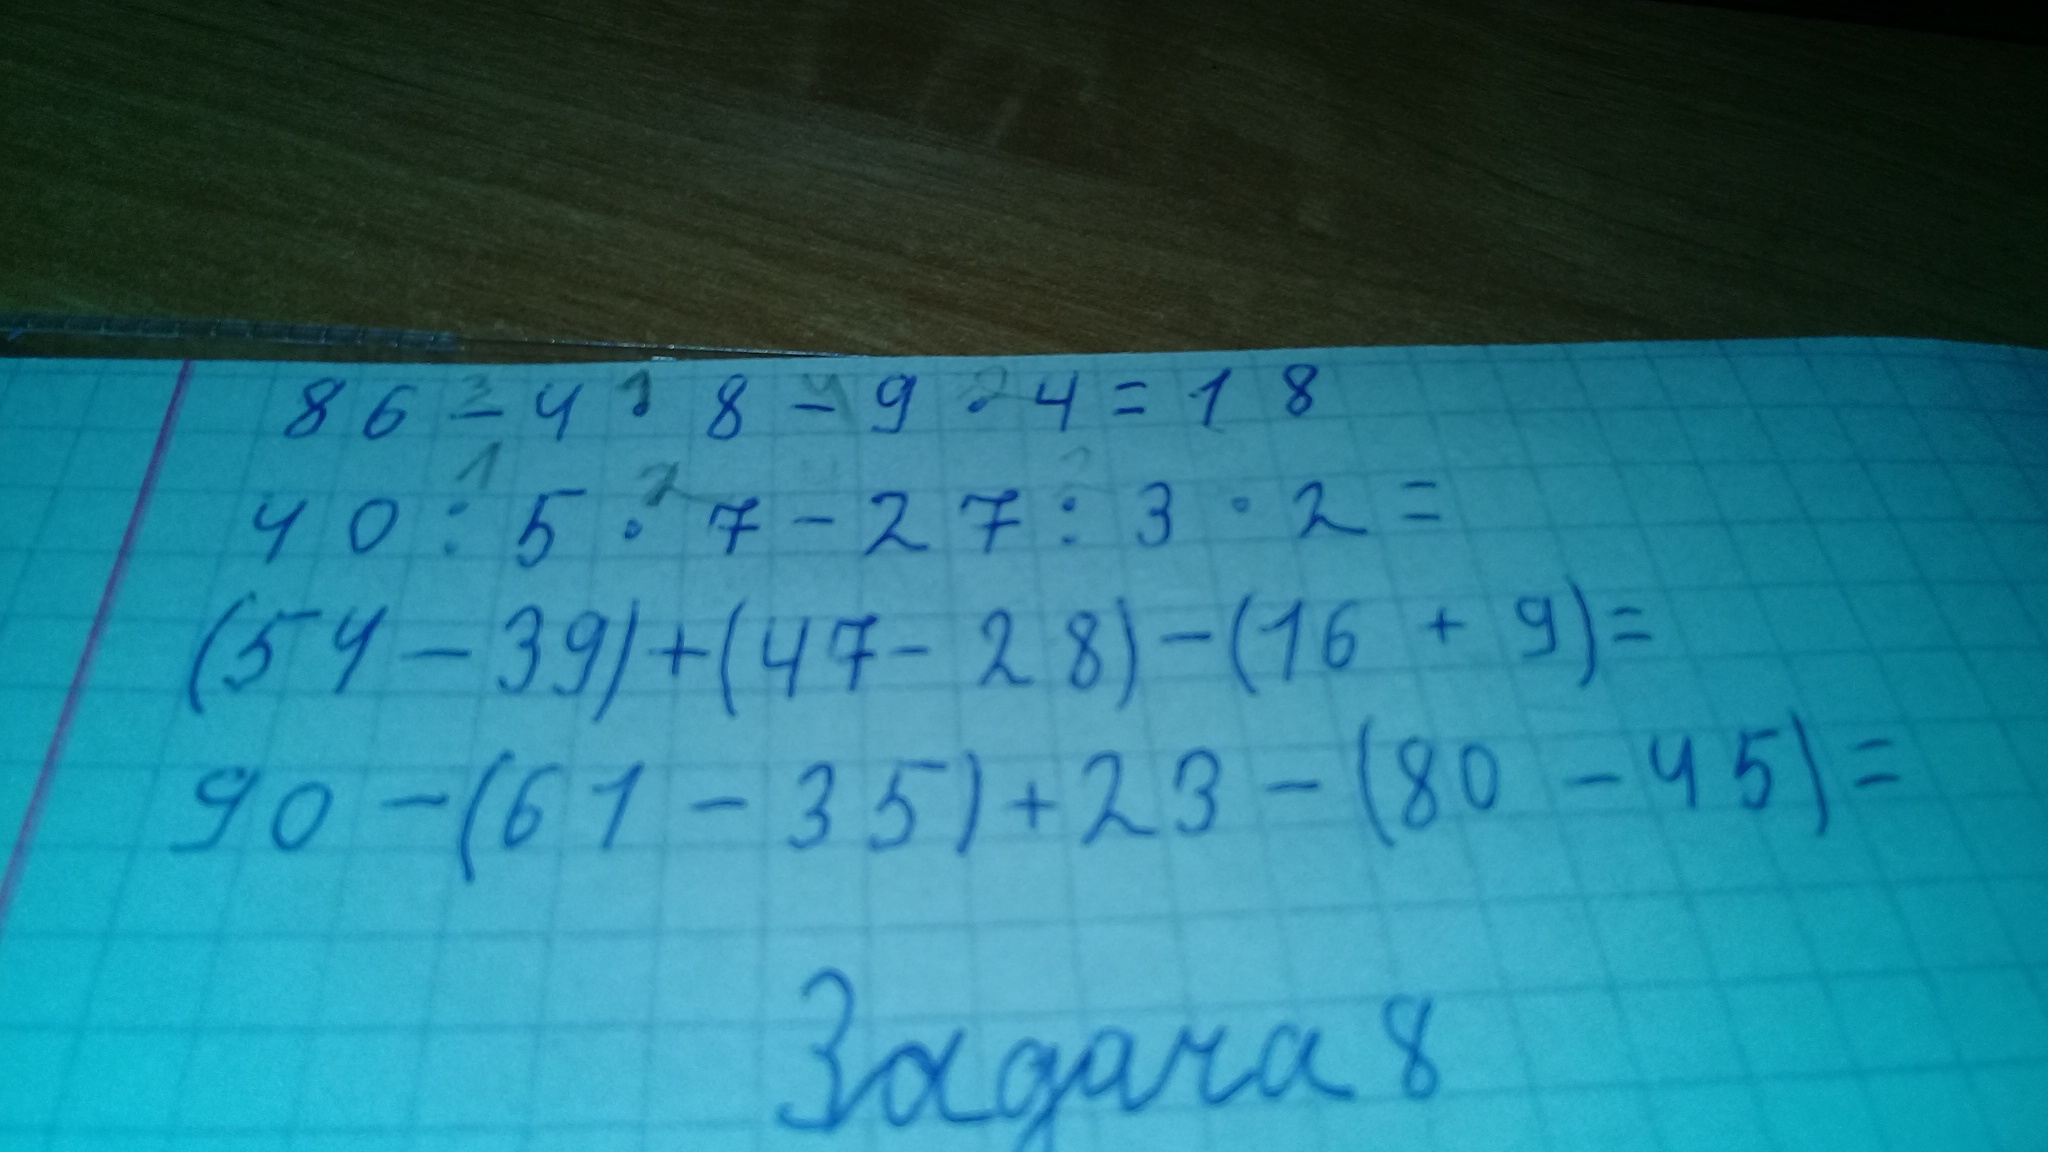 86 - 4 · 8 - 9 · 4 = 18
40 : 5 · 7 - 27 : 3 · 2 =
(54 - 39) + (47 - 28) - (16 + 9) =
90 - (61 - 35) + 23 - (80 - 45) =
Задача 8